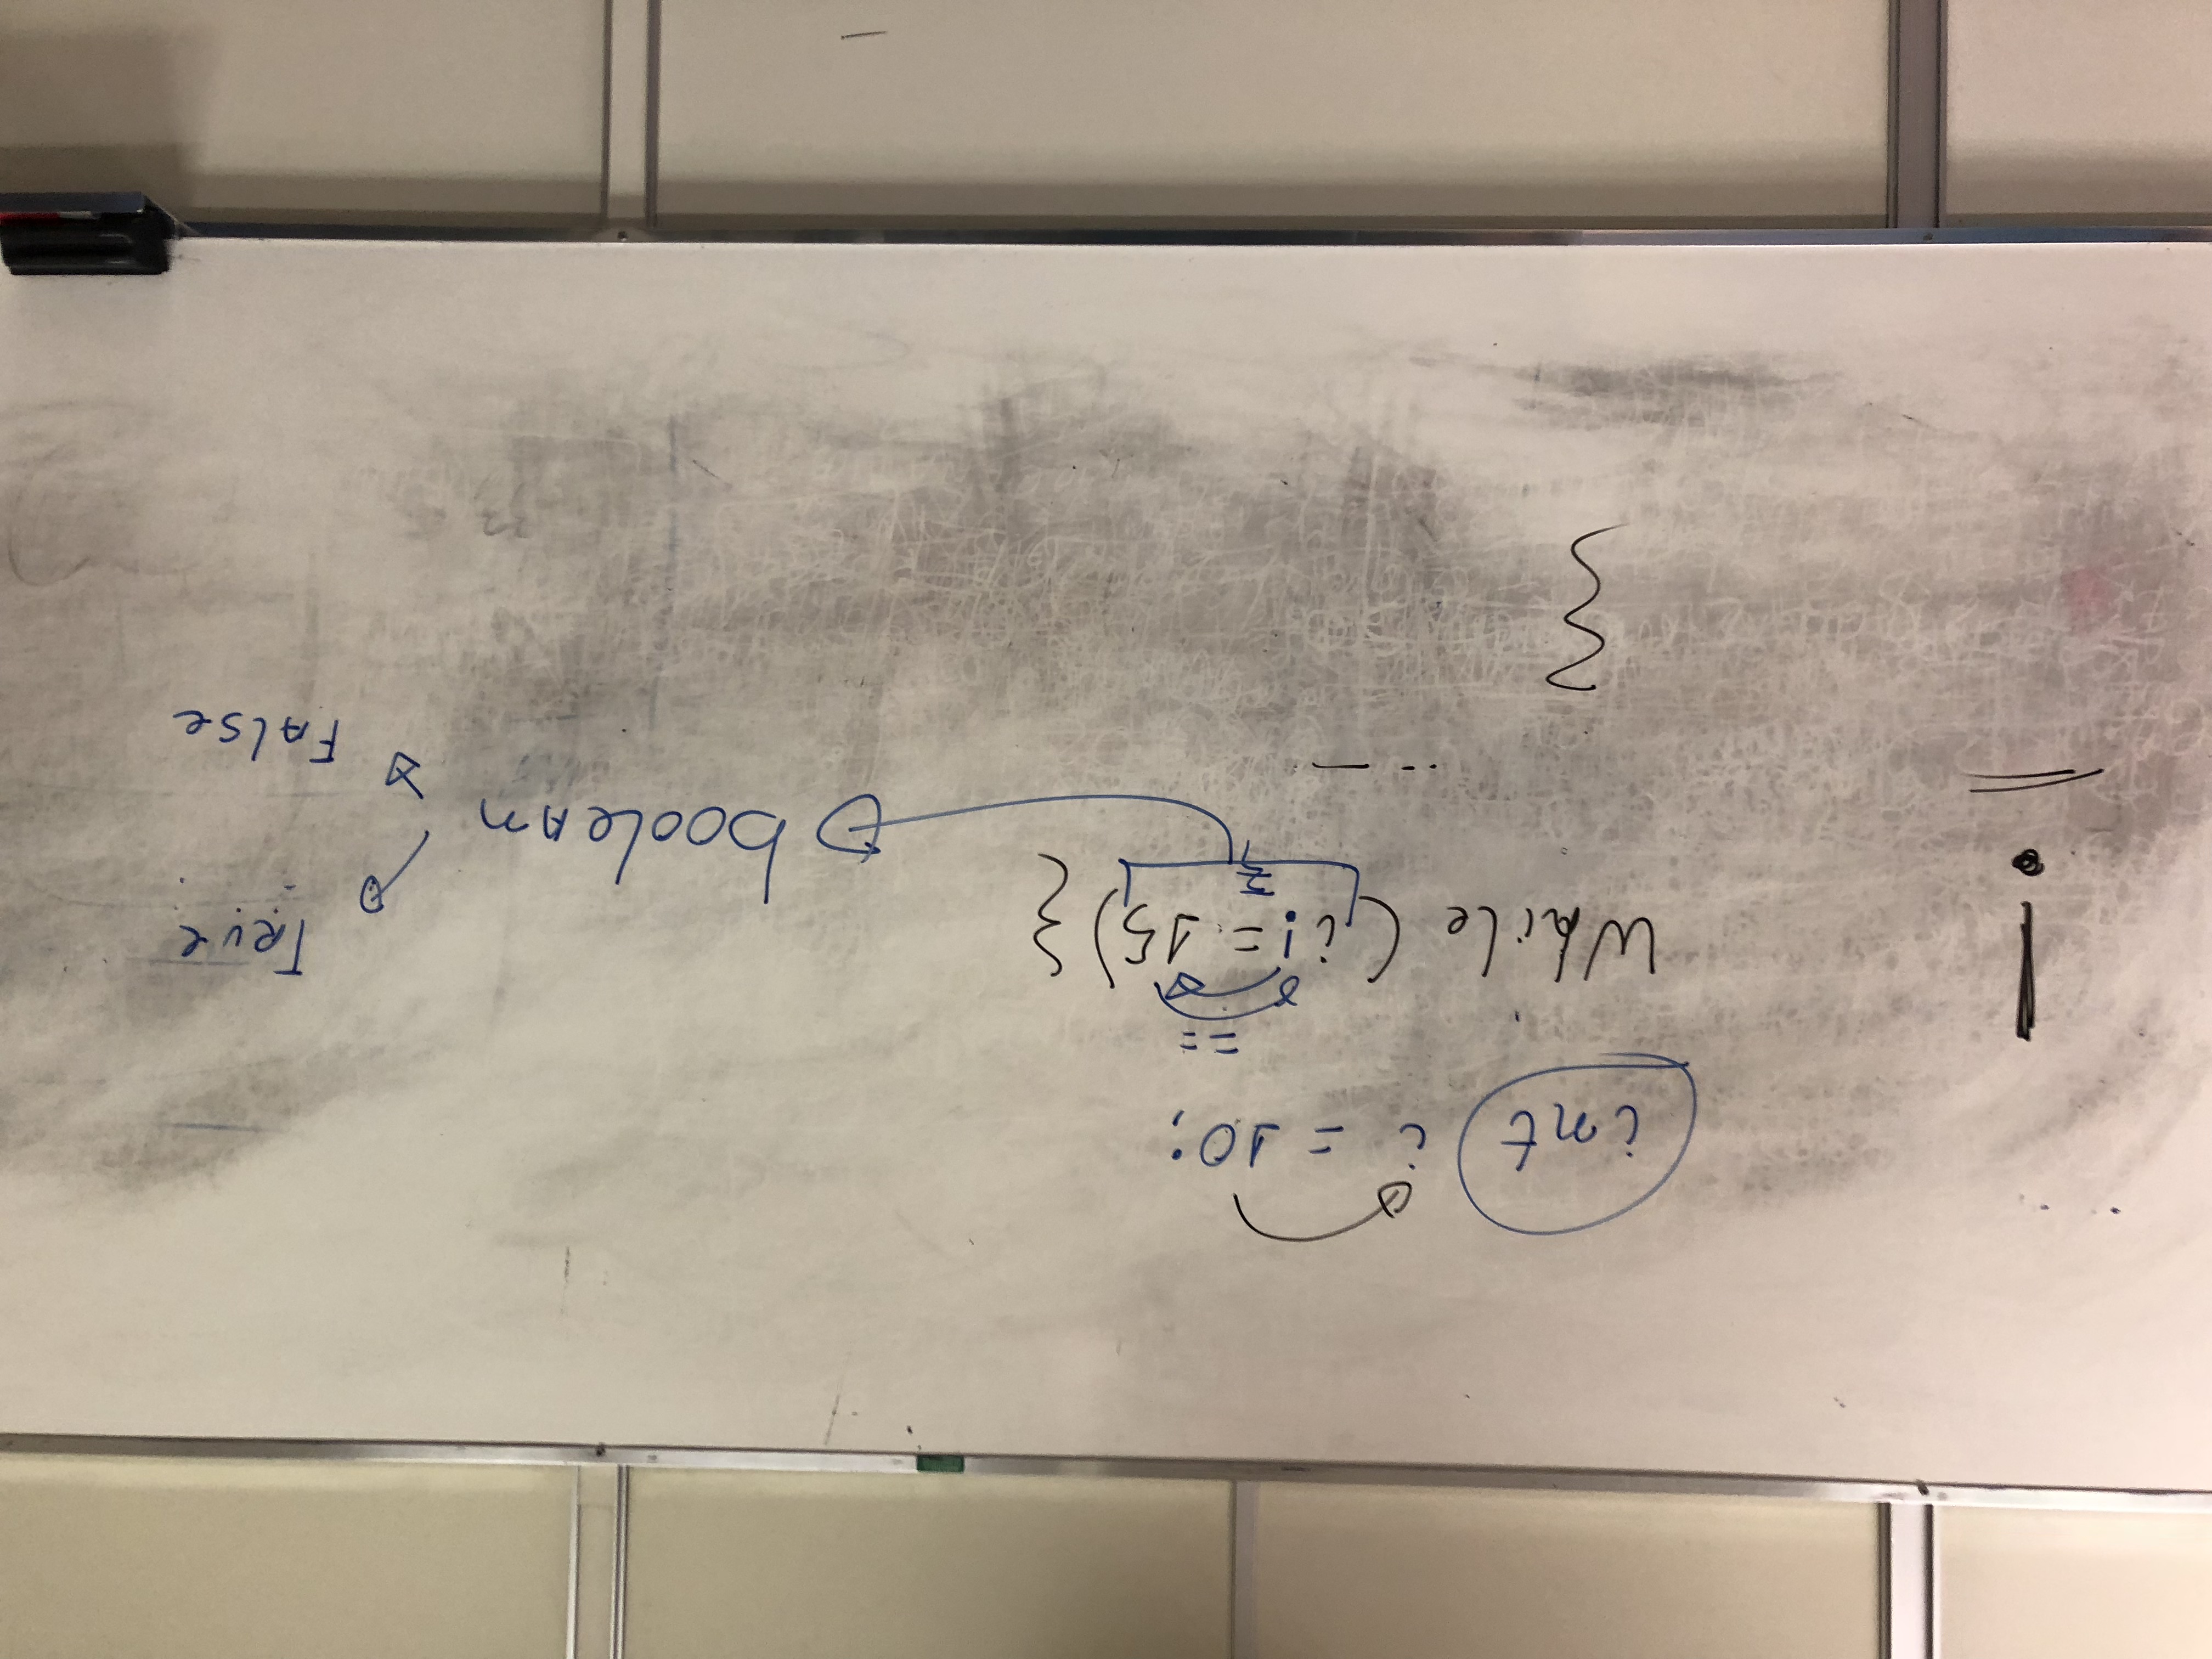 int i = 10;
==
!
While (i != 15) {
boolean
True
False
.. —
}